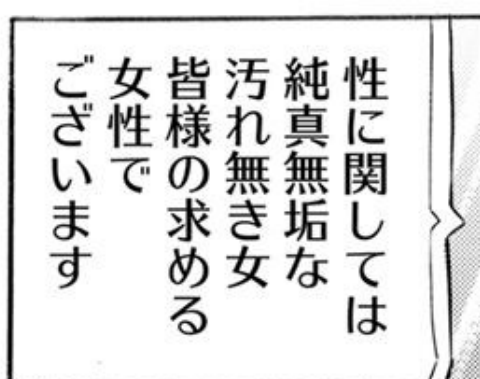 性に関しては
純真無垢な
汚れ無き女
皆様の求める
女性で
ございます